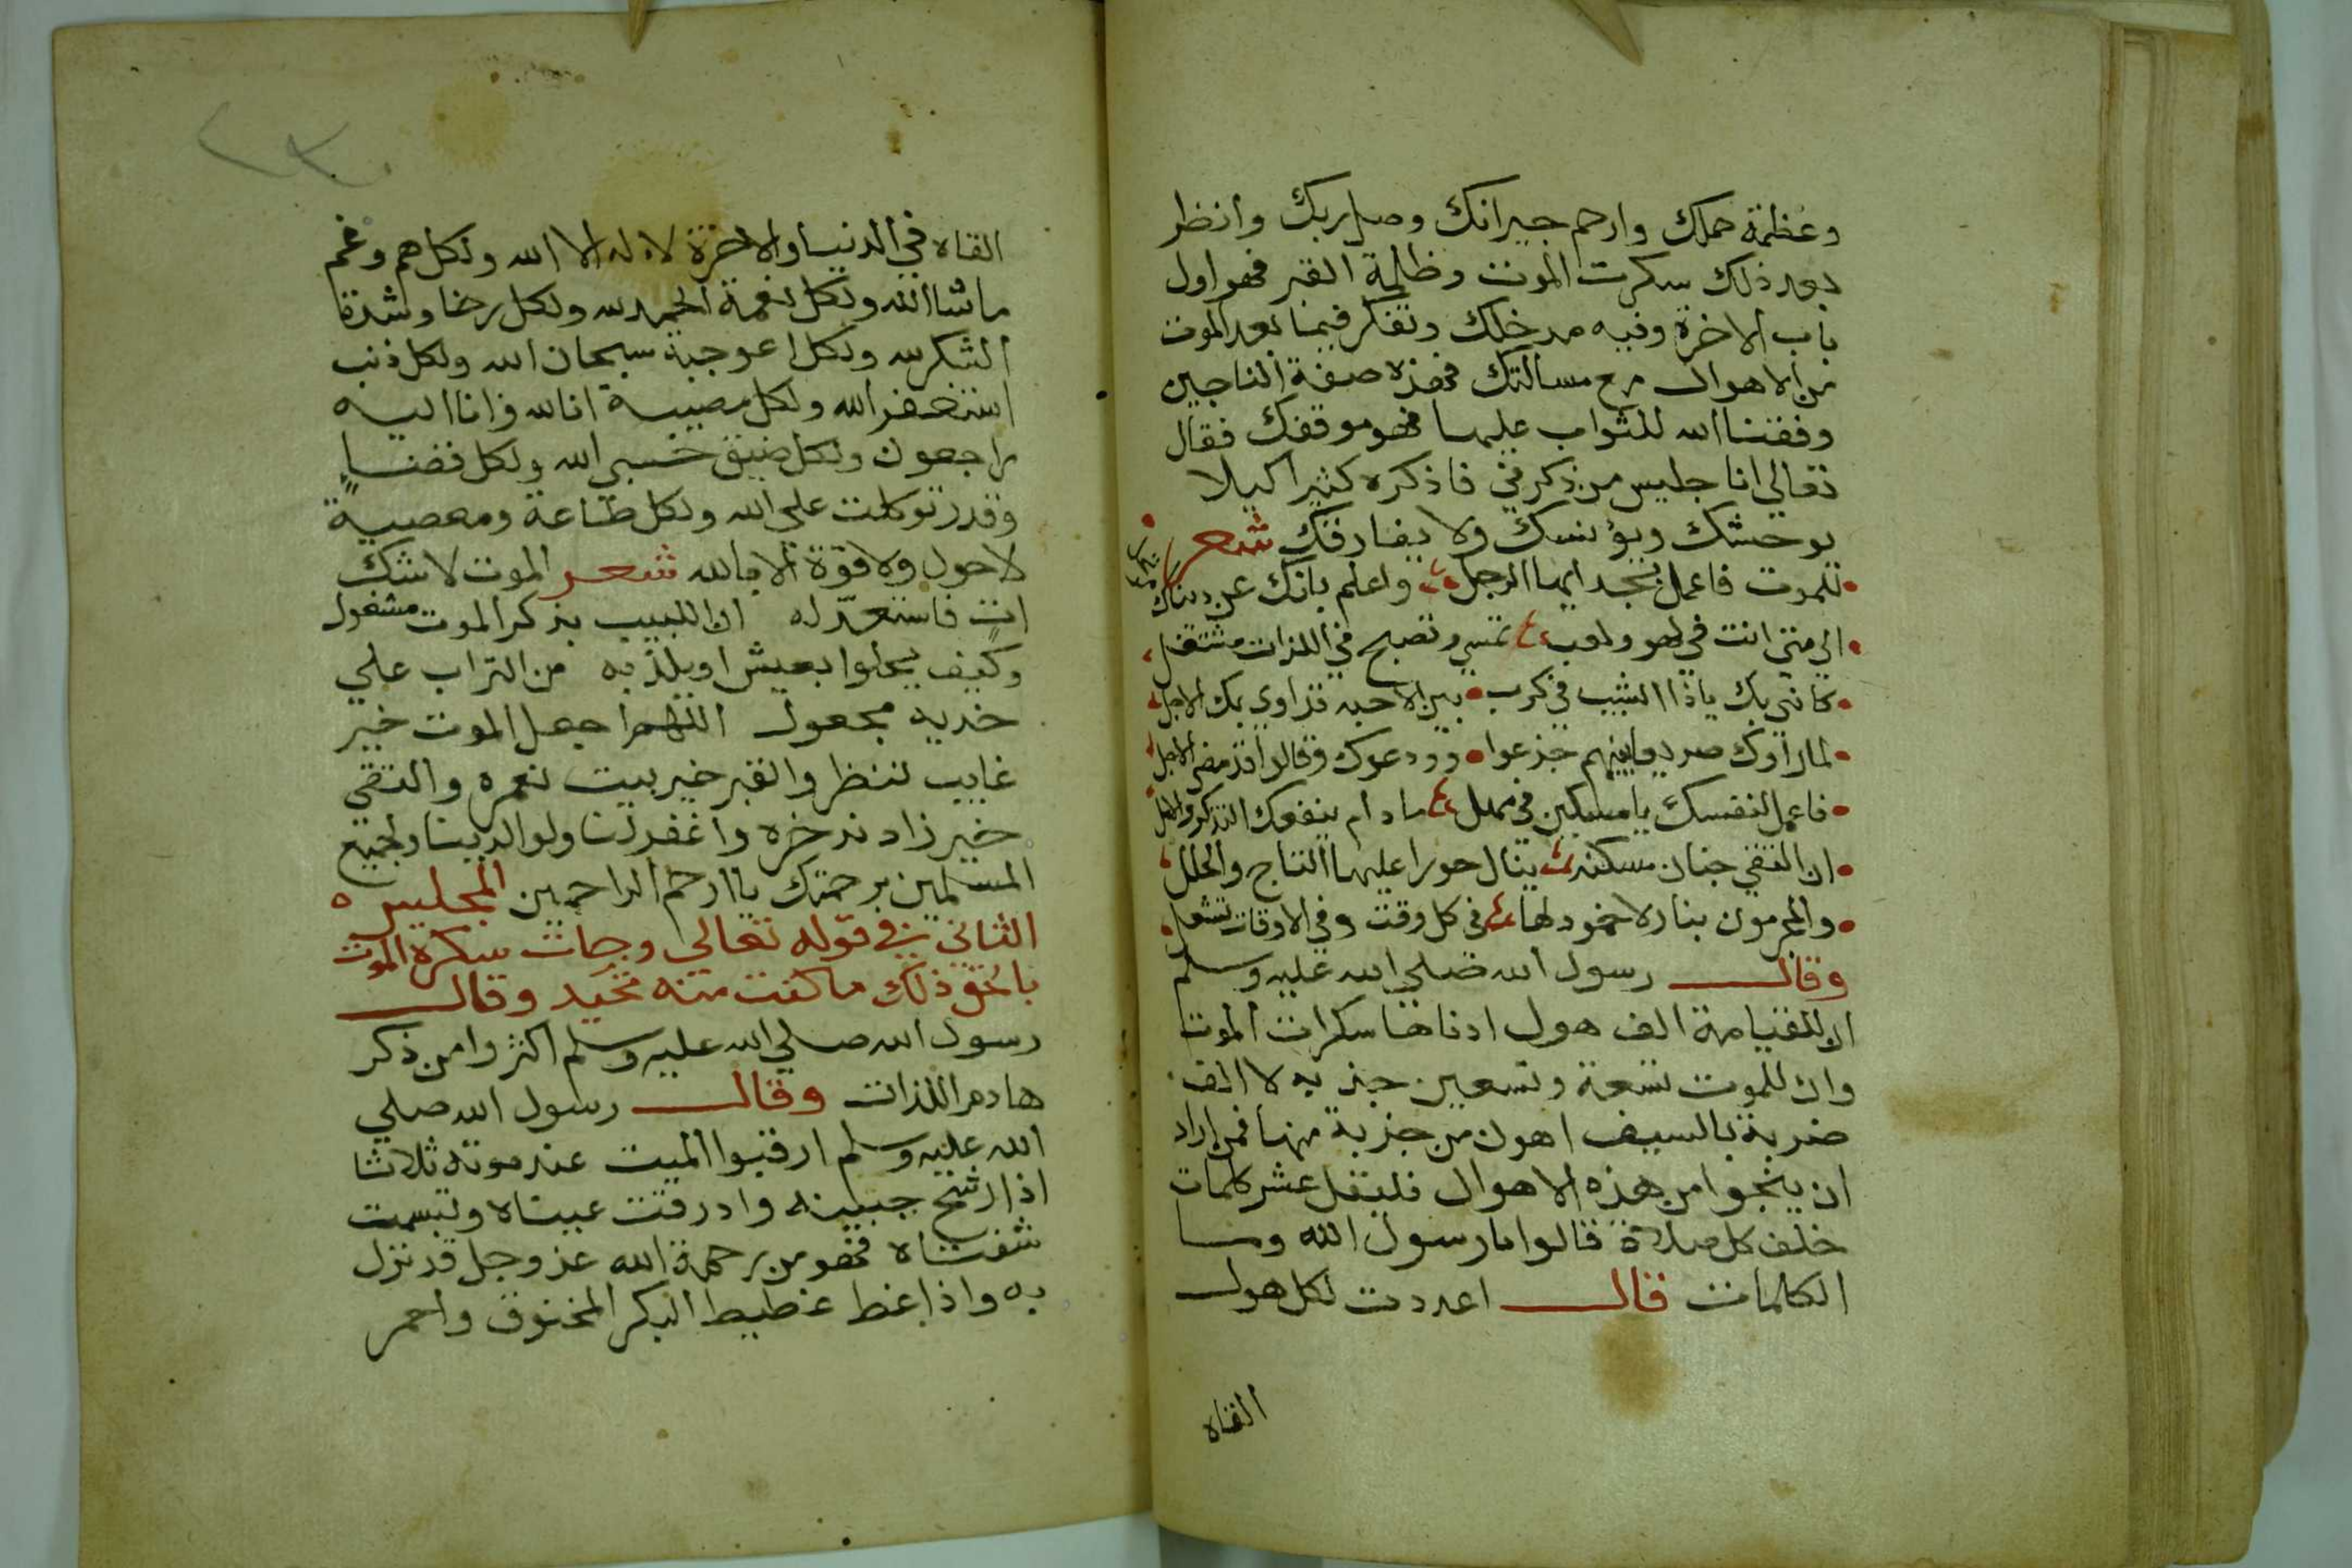 وعظمة حملك وارحم جيرانك وصل ربك وانظر
بعد ذلك سكرت الموت وظلمة القبر فهو اول
باب الاخرة وفيه مدخلك وتفكر فيما بعد الموت
من الاهوال مع مسالتك فهذه صفة الناجين
وفقنا الله للثواب عليها فهو موقفك فقال
تعالي انا جليس من ذكرني فاذكره كثيرا كيلا
يوحشك ويؤنسك ولا يفارقك شعر
للموت فاعمل بجد ايها الرجل واعلم بانك عن دنياك
الي متي انت في لهو ولعب تمسي وتصبح في اللذات مشتغل
كاني بك ياذا الشيب في كرب بين الاحبه قد اودي بك الاجل
لما راوك صريعا بينهم جزعوا وودعوك وقالوا قد مضي الاجل
فاعمل لنفسك يا مسكين في مهل ما دام ينفعك التذكر والامل
ان التقي جنان مسكنه ينال حورا عليها التاج والحلل
والمجرمون بنار لا خمود لها في كل وقت وفي الاوقات تشعل
وقال رسول الله صلي الله عليه وسلم
ان للقيامة الف هول ادناها سكرات الموت
وان للموت تسعة وتسعين جذبه لا الف
ضربة بالسيف اهون من جذبة منها فمن اراد
ان ينجوا من هذه الاهوال فليقل عشر كلمات
خلف كل صلاة قالوا يا رسول الله وما
الكلمات قال اعددت لكل هول
القاه
القاه في الدنيا والاخرة لا اله الا الله ولكل هم وغم
ماشا الله ولكل نعمة الحمد لله ولكل رخا وشدة
الشكر لله ولكل اعوجبة سبحان الله ولكل ذنب
استغفر الله ولكل مصيبة انا لله وانا اليه
راجعون ولكل ضيق حسبي الله ولكل قضا
وقدر توكلت علي الله ولكل طاعة ومعصية
لا حول ولا قوة الا بالله شعر الموت لا شك
ات فاستعد له ان اللبيب بذكر الموت مشغول
وكيف يحلوا بعيش او يلذ به من التراب علي
خديه مجعول اللهم اجعل الموت خير
غايب ننتظر والقبر خير بيت نعمره والتقي
خير زاد ندخره واغفر لنا ولوالدينا ولجميع
المسلمين برحمتك يا ارحم الراحمين المجلس
الثاني في قوله تعالي وجات سكرة الموت
بالحق ذلك ما كنت منه تحيد وقال
رسول الله صلي الله عليه وسلم اكثروا من ذكر
هادم اللذات وقال رسول الله صلي
الله عليه وسلم ارقبوا الميت عند موته ثلاثا
اذا رشح جبينه وادرفت عيناه وتبسمت
شفتاه فهو من رحمة الله عز وجل قد نزل
به واذا غط غطيط البكر المخنوق واحمر